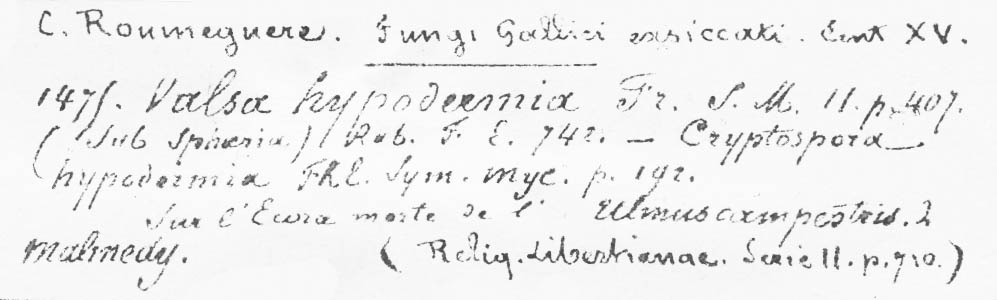 C. Roumeguere. Fungi Gallici exsiccati. Cent XV.
1475. Valsa hypodermia Fr. S. M. II. p. 407.
(Sub Sphæria) Rab. F. E. 742. — Cryptospora
hypodermia Fkl. Sym. myc. p. 192.
Sur l'Ecora morte de l' Ulmus campestris.
Malmedy. (Reliq. Libertianae. Serie II. p. 710.)